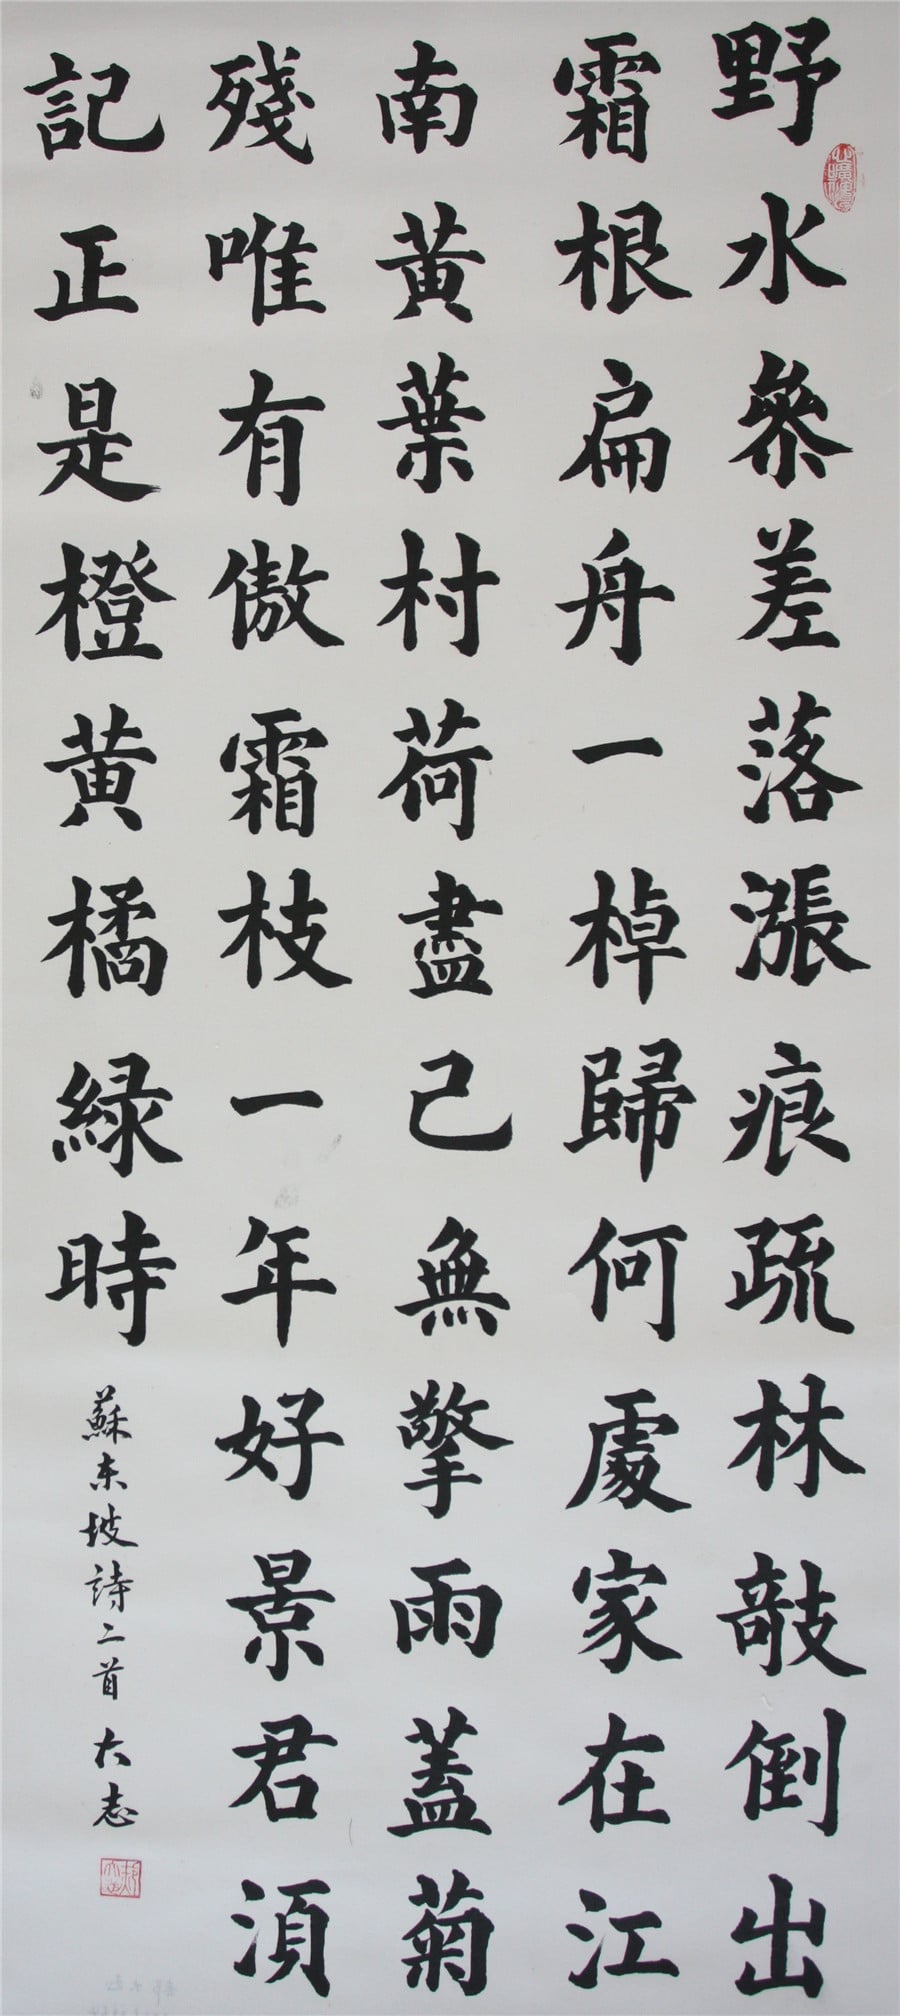 野水參差落漲痕疏林攲倒出
霜根扁舟一棹歸何處家在江
南黃葉村荷盡已無擎雨蓋菊
殘唯有傲霜枝一年好景君須
記正是橙黃橘綠時
蘇東坡詩二首 大志